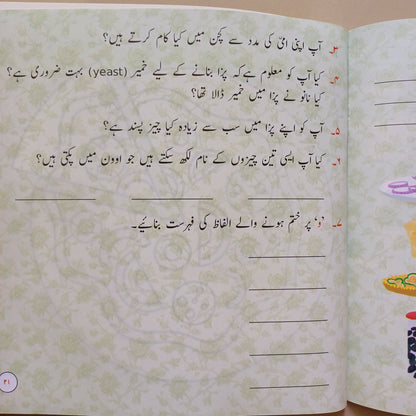 ۳۔ آپ اپنی امّی کی مدد سے کچن میں کیا کام کرتے ہیں؟
۴۔ کیا آپ کو معلوم ہے کہ پزا بنانے کے لیے خمیر (yeast) بہت ضروری ہے؟
کیا نانو نے پزا میں خمیر ڈالا تھا؟
۵۔ آپ کو اپنے پزا میں سب سے زیادہ کیا چیز پسند ہے؟
۶۔ کیا آپ ایسی تین چیزوں کے نام لکھ سکتے ہیں جو اوون میں پکتی ہیں؟
۷۔ ’و‘ پر ختم ہونے والے الفاظ کی فہرست بنائیے۔
۲۱